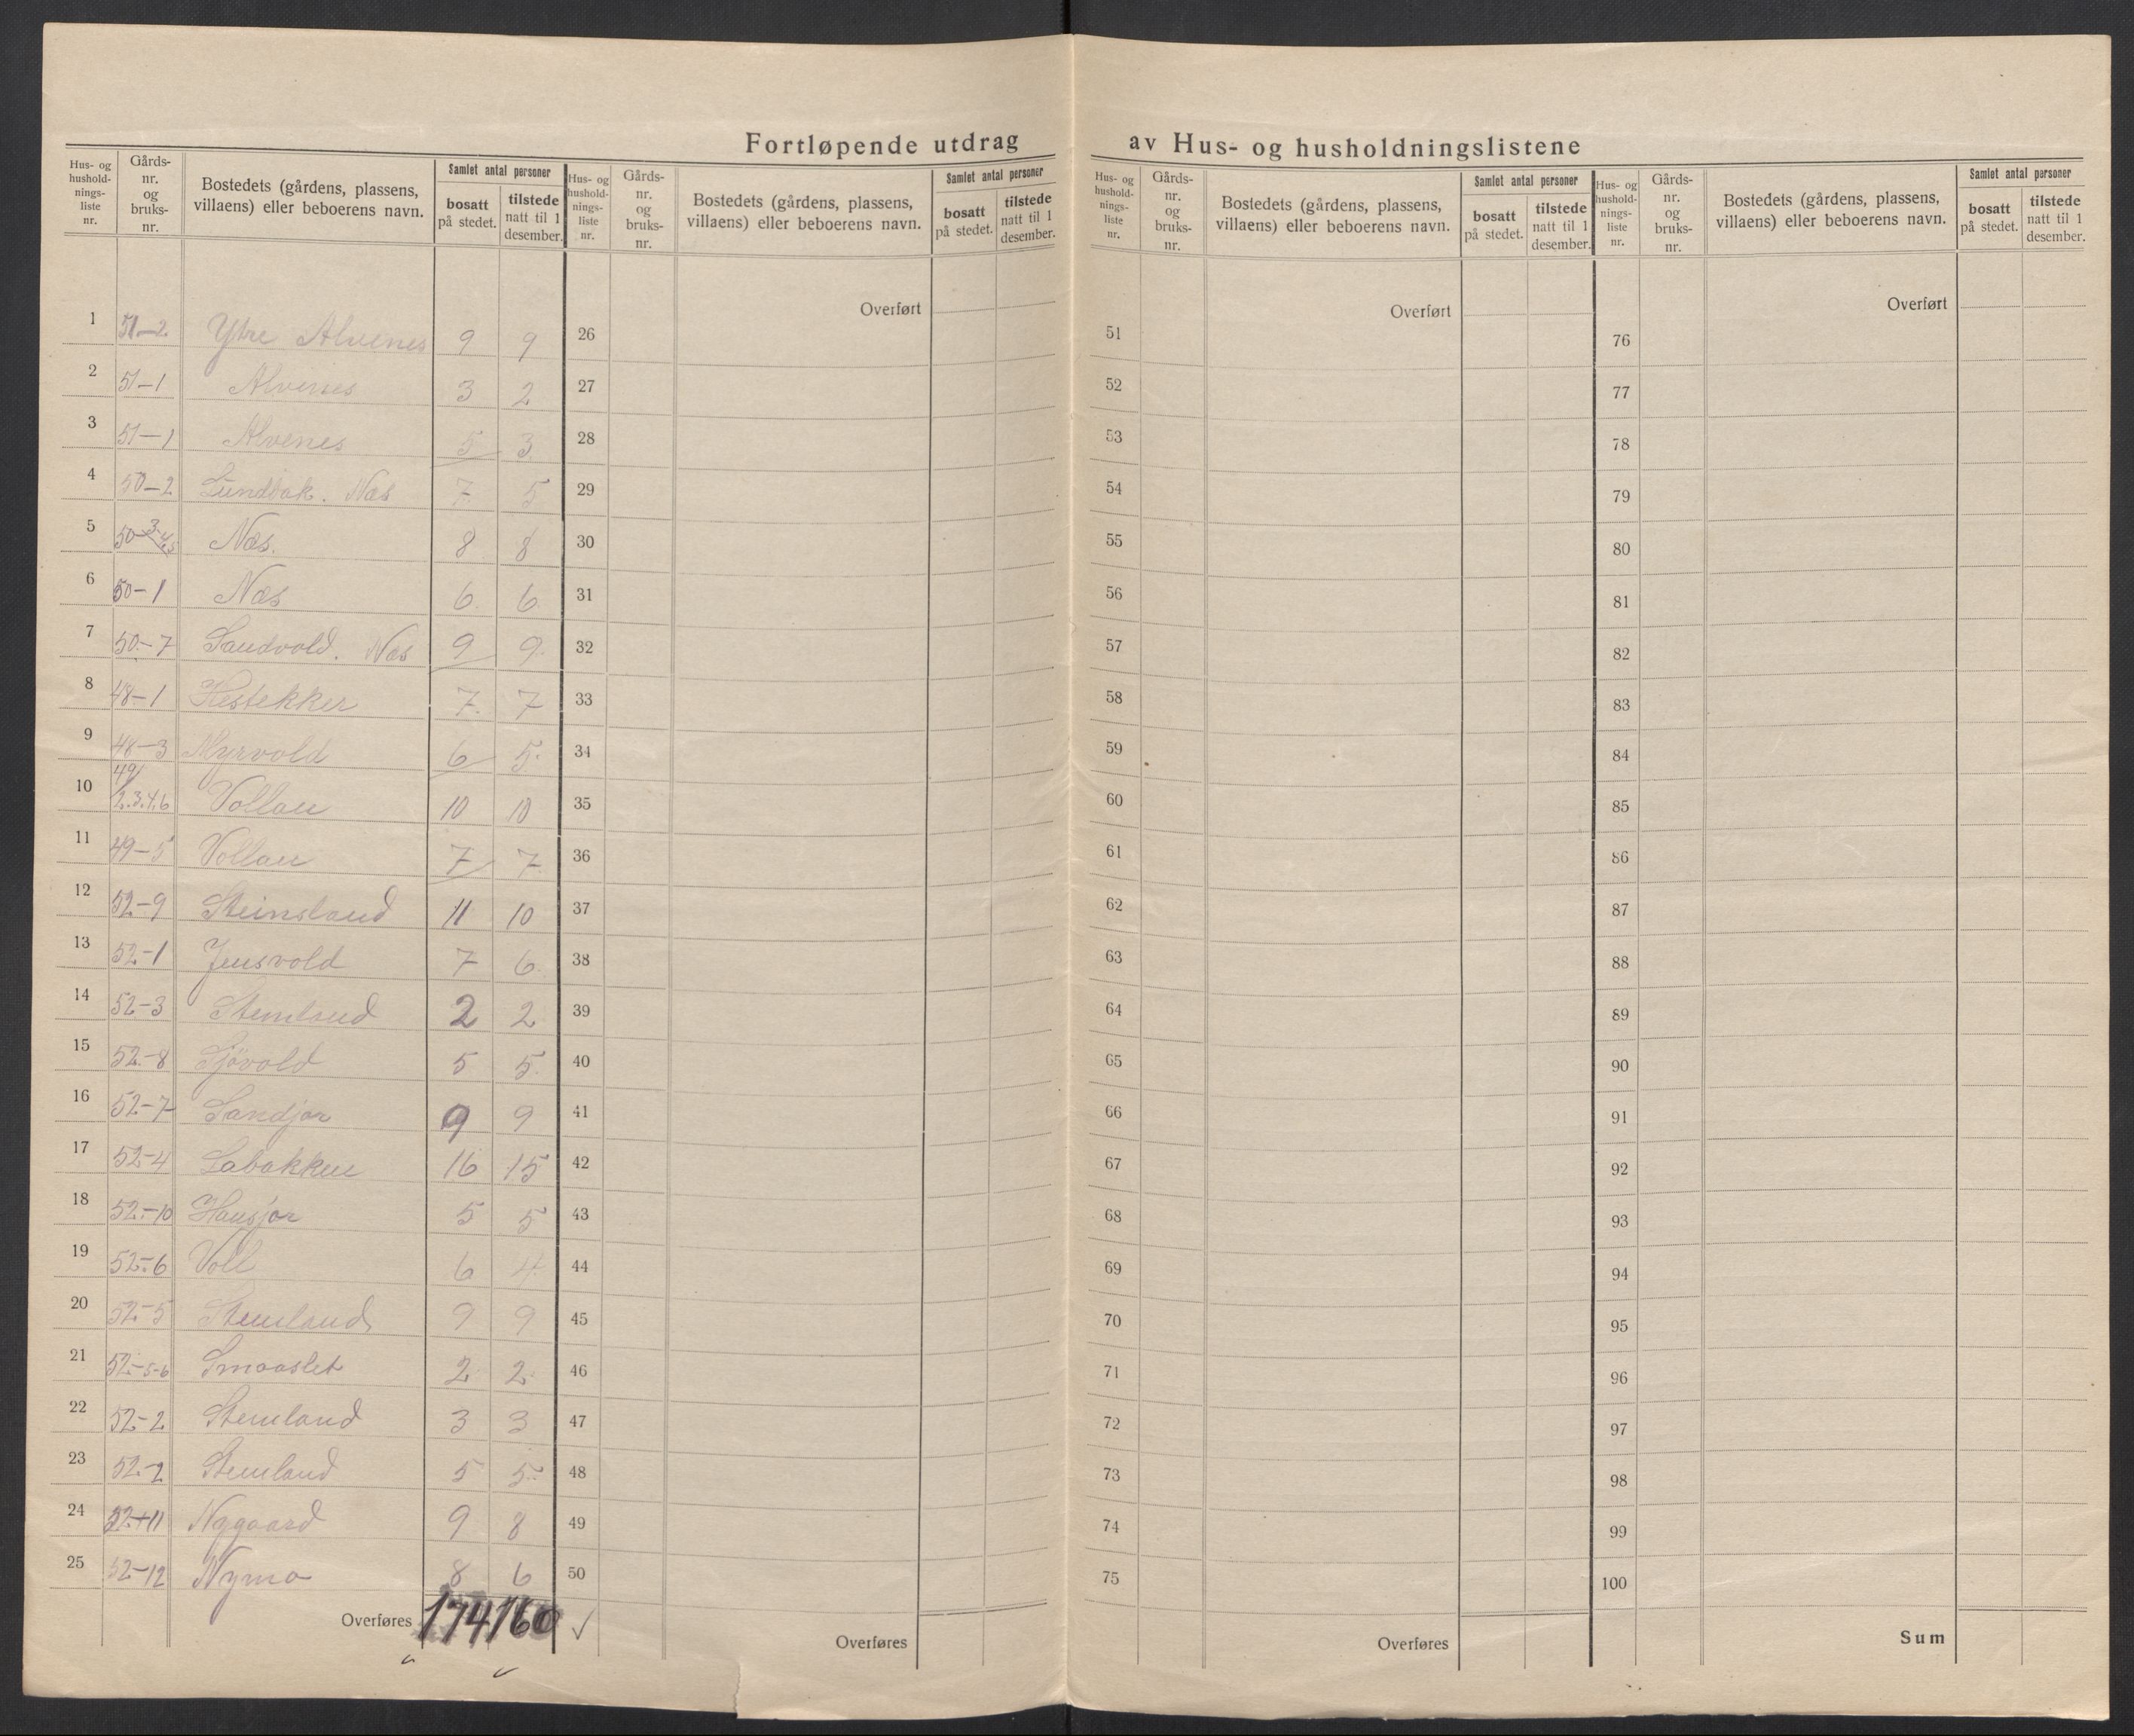 Fortløpende utdrag av Hus- og husholdningslistene
Hus- og husholdnings-liste nr. | Gårds-nr. og bruks-nr. | Bostedets (gårdens, plassens, villaens) eller beboerens navn. | Samlet antal personer | bosatt på stedet. | tilstede natt til 1 desember.
Hus- og hushold-nings-liste nr. | Gårds-nr. og bruks-nr. | Bostedets (gårdens, plassens, villaens) eller beboerens navn. | Samlet antal personer | bosatt på stedet. | tilstede natt til 1 desember.
Hus- og hushold-nings-liste nr. | Gårds-nr. og bruks-nr. | Bostedets (gårdens, plassens, villaens) eller beboerens navn. | Samlet antal personer | bosatt på stedet. | tilstede natt til 1 desember.
Hus- og hushold-nings-liste nr. | Gårds-nr. og bruks-nr. | Bostedets (gårdens, plassens, villaens) eller beboerens navn. | Samlet antal personer | bosatt på stedet. | tilstede natt til 1 desember.
Overført Overført Overført
1 51-2 Ytre Alvenes 9 9 26 51 76
2 51-1 Alvenes 3 2 27 52 77
3 51-1 Alvenes 5 3 28 53 78
4 50-2 Lundbak. Næs 7 5 29 54 79
5 50-3,4,5 Næs. 8 8 30 55 80
6 50-1 Næs 6 6 31 56 81
7 50-7 Sandvold. Næs 9 9 32 57 82
8 48-1 Hestekker 7 7 33 58 83
9 48-3 Myrvold 6 5 34 59 84
10 49/2.3.4.6 Vollan 10 10 35 60 85
11 49-5 Vollan 7 7 36 61 86
12 52-9 Steinsland 11 10 37 62 87
13 52-1 Jensvold 7 6 38 63 88
14 52-3 Stemland 2 2 39 64 89
15 52-8 Sjövold 5 5 40 65 90
16 52-7 Sandjor 9 9 41 66 91
17 52-4 Labakken 16 15 42 67 92
18 52-10 Hansjor 5 5 43 68 93
19 52-6 Voll 6 4 44 69 94
20 52-5 Stemland 9 9 45 70 95
21 52-5-6 Smaaslet 2 2 46 71 96
22 52-2 Stemland 3 3 47 72 97
23 52-2 Stemland 5 5 48 73 98
24 52-11 Nygaard 9 8 49 74 99
25 52-12 Nymo 8 6 50 75 100
Overføres 174 160 ✓ Overføres Overføres Sum